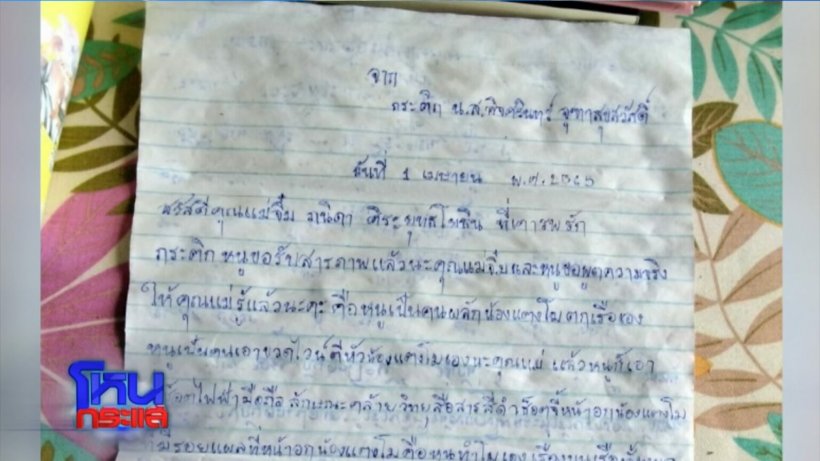 จาก
กระติก น.ส.อิจศรินทร์ จุฑาสุขสวัสดิ์
วันที่ 1 เมษายน พ.ศ. 2565
สวัสดีคุณแม่จี๋ม ภนิดา ศิระยุทธโยธิน ที่เคารพรัก
กระติก หนูขอรับสารภาพแล้วนะคุณแม่จี๋มและหนูขอพูดความจริง
ให้คุณแม่รู้แล้วนะคะ คือหนูเป็นคนผลักน้องแตงโมตกเรือเอง
หนูเป็นคนเอาขวดไวน์ตีหัวน้องแตงโมเองนะคุณแม่ แล้วหนูก็เอา
ไฟฟ้ามือถือ ลักษณะคล้ายวิทยุสื่อสารสีดำช็อตจี้หน้าอกน้องแตงโม
มีรอยแผลที่หน้าอกน้องแตงโมคือหนูทำไปเอง
โหนกระแส